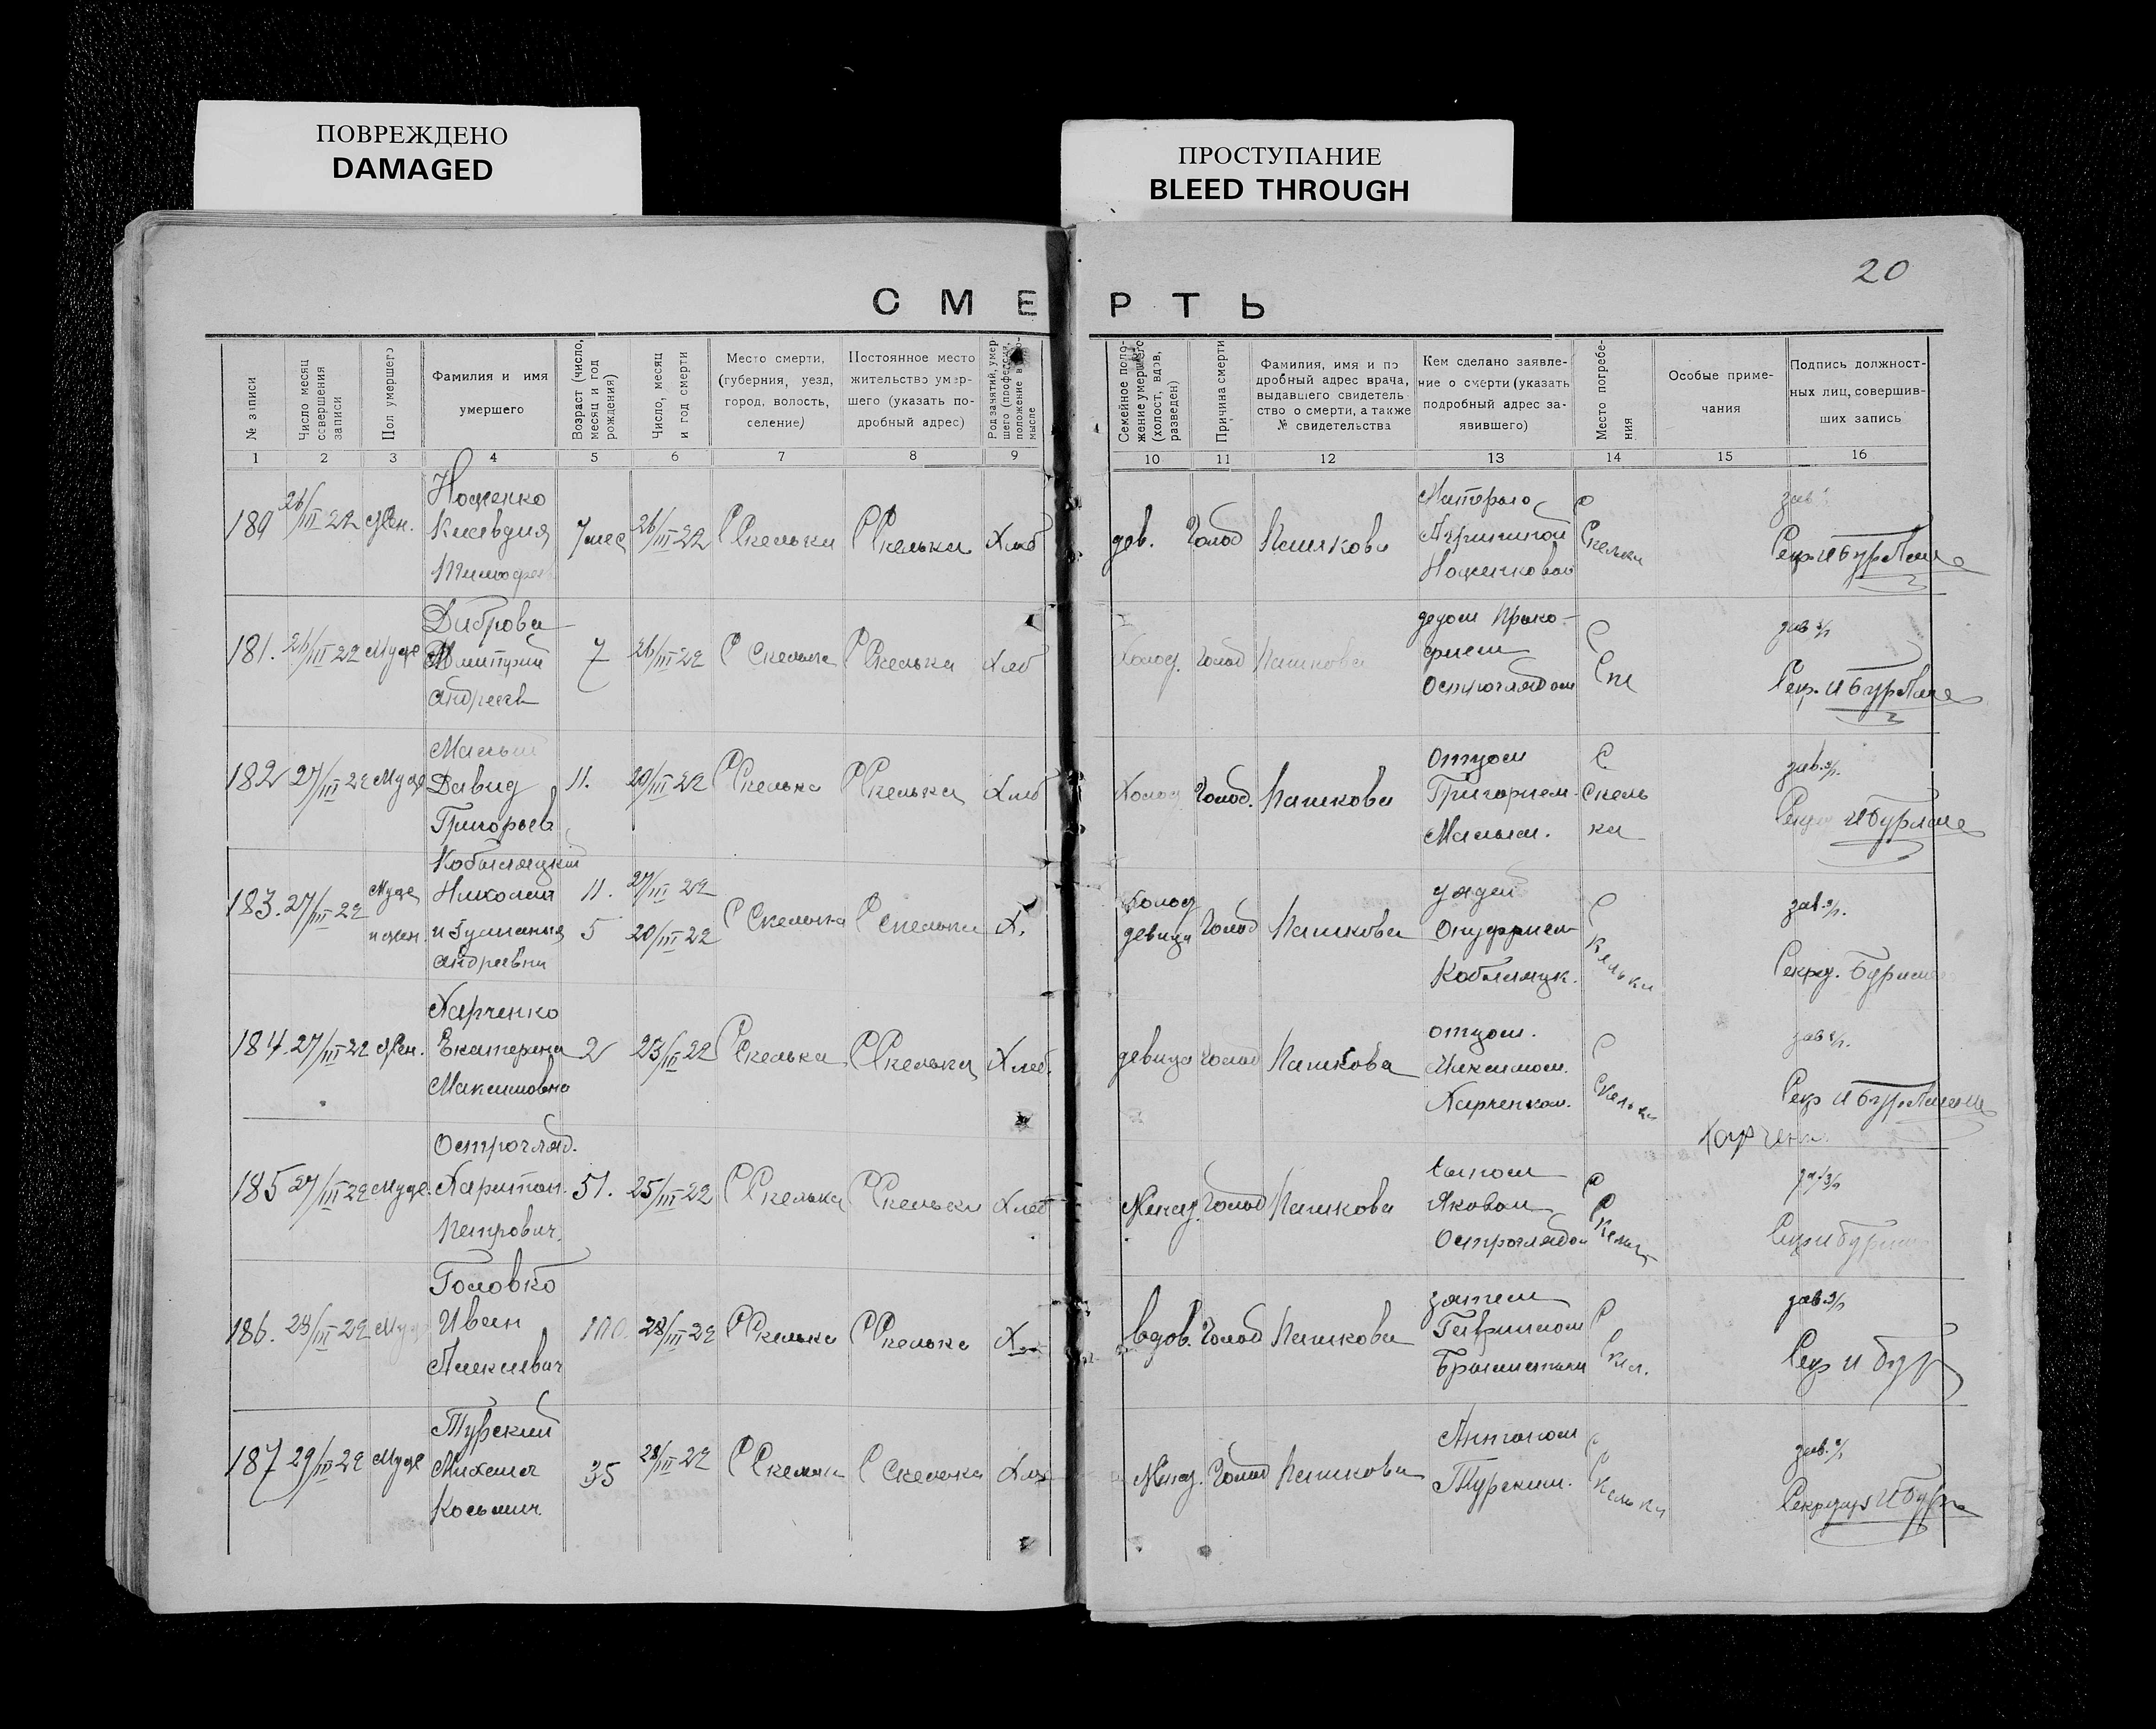 ПОВРЕЖДЕНО
DAMAGED
ПРОСТУПАНИЕ
BLEED THROUGH
20
СМЕРТЬ
№ записи
Число месяц совершения записи
Пол умершего
Фамилия и имя умершего
Возраст (число, месяц и год рождения)
Число, месяц и год смерти
Место смерти, (губерния, уезд, город, волость, селение)
Постоянное место жительство умершего (указать подробный адрес)
Род занятий, умершего (профессия, положение в промысле
Семейное положение умершего (холост, вдов, разведен)
Причина смерти
Фамилия, имя и подробный адрес врача, выдавшего свидетельство о смерти, а также № свидетельства
Кем сделано заявление о смерти (указать подробный адрес заявившего)
Место погребения
Особые примечания
Подпись должностных лиц, совершивших запись
1 2 3 4 5 6 7 8 9 10 11 12 13 14 15 16
180 26/III 22 Жен.
Ноженко
7 мес 26/III 22 С Скелька С Скелька Хлеб
дев. Голод Пашкова
С Скелька
181. 26/III 22 Муж
Диброва
Дмитрий
Андреев
7 26/III 22 С Скелька С Скелька Хлеб
Холод. Голод Пашкова
дедом Проко-
фием
Остроглядом
С Ск
182 27/III 22 Муж
Малый
Давид
Григорьев
11. 20/III 22 С Скелька С Скелька Хлеб
Холод Голод. Пашкова
Отцом
Григорием
Малым.
С. Скель
ка
183. 27/III 22 Муж и жен.
Кобыляцкий
Николай
Андреевна
11. 27/III 22
5 20/III 22
С Скелька С Скелька Х.
Холод
девица Голод Пашкова
дядей
Онуфрием
Кобыляцк.
С Скельки
184. 27/III 22 Жен.
Харченко
Екатерина
Максимовна
2 23/III 22 С Скелька С Скелька Хлеб.
девица Голод Пашкова
отцом.
Максимом.
Харченком.
С Скельки
185 27/III 22 Муж.
Острогляд.
Харитон.
Петрович.
51. 25/III 22 С Скелька С Скельки Хлеб
Женат. Голод Пашкова
Сыном
Яковом
Остроглядом
С Скельк
186. 28/III 22 Муж
Головко
Иван
Алексеевич
100. 28/III 22 С Скелька С Скелька
вдов. Голод Пашкова
зятем
Гавриилом
С Скел.
187 29/III 22 Муж
Турский
Михаил
Косьмич.
35 28/III 22 С Скелька С Скелька Хлеб
Женат. Голод Пашкова
Антоном
Турским.
С Скельки